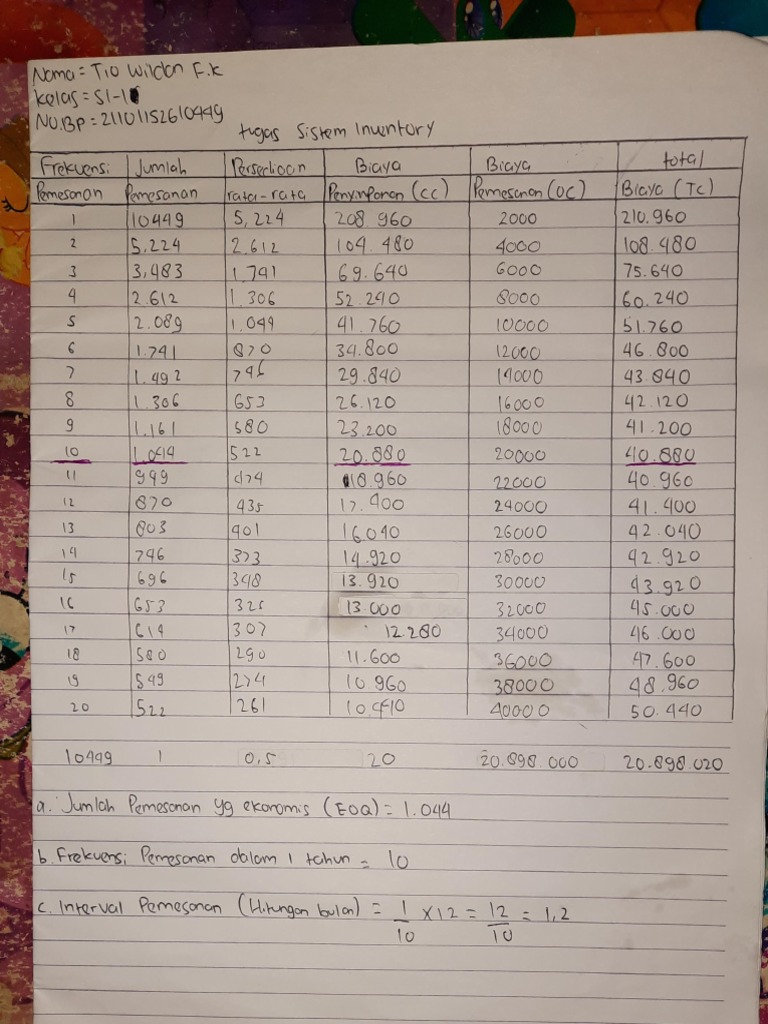 Nama = Tio Wildan F.k
Kelas = SI-1
NO.BP = 21101152610449
tugas Sistem Inventory
Frekuensi Jumlah Persediaan Biaya Biaya total
Pemesanan Pemesanan rata-rata Penyimponan (CC) Pemesanan (OC) Biaya (TC)
1 10449 5,224 208.960 2000 210.960
2 5.224 2.612 104.480 4000 108.480
3 3,483 1.741 69.640 6000 75.640
4 2.612 1.306 52.240 8000 60.240
5 2.089 1.044 41.760 10000 51.760
6 1.741 870 34.800 12000 46.800
7 1.492 746 29.840 14000 43.840
8 1.306 653 26.120 16000 42.120
9 1.161 580 23.200 18000 41.200
10 1.044 522 20.880 20000 40.880
11 949 474 18.960 22000 40.960
12 870 435 17.400 24000 41.400
13 803 401 16.040 26000 42.040
14 746 373 14.920 28000 42.920
15 696 348 13.920 30000 43.920
16 653 325 13.000 32000 45.000
17 614 307 12.280 34000 46.000
18 580 290 11.600 36000 47.600
19 549 274 10.960 38000 48.960
20 522 261 10.440 40000 50.440
10449 1 0,5 20 20.898.000 20.898.020
a. Jumlah Pemesanan yg ekonomis (EOQ) = 1.044
b. Frekuensi Pemesanan dalam 1 tahun = 10
c. Interval Pemesanan (Hitungan bulan) = 1/10 x 12 = 12/10 = 1,2